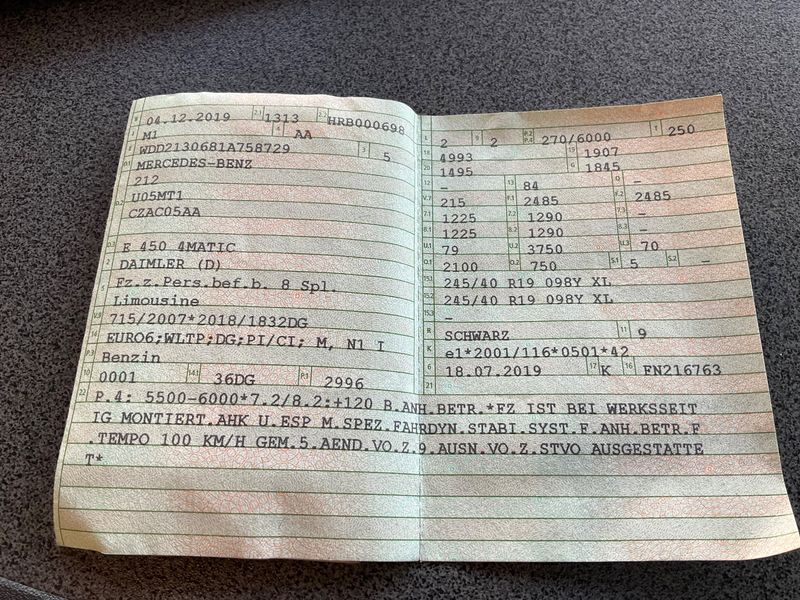 B 04.12.2019 2.1 1313 2.2 HRB000698
J M1 4 AA
E WDD2130681A758729 3 5
D.1 MERCEDES-BENZ
212
D.2 U05MT1
CZAC05AA
D.3 E 450 4MATIC
2 DAIMLER (D)
5 Fz.z.Pers.bef.b. 8 Spl.
Limousine
V.9 715/2007*2018/1832DG
14 EURO6;WLTP;DG;PI/CI; M, N1 I
P.3 Benzin
10 0001 14.1 36DG P.1 2996
L 2 9 2 P.2 P.4 270/6000 T 250
18 4993 19 1907
20 1495 G 1845
12 – 13 84 Q –
V.7 215 F.1 2485 F.2 2485
7.1 1225 7.2 1290 7.3 –
8.1 1225 8.2 1290 8.3 –
U.1 79 U.2 3750 U.3 70
O.1 2100 O.2 750 S.1 5 S.2 –
15.1 245/40 R19 098Y XL
15.2 245/40 R19 098Y XL
15.3 –
R SCHWARZ 11 9
K e1*2001/116*0501*42
6 18.07.2019 17 K 16 FN216763
21
22 P.4: 5500-6000*7.2/8.2:+120 B.ANH.BETR.*FZ IST BEI WERKSSEIT
IG MONTIERT.AHK U.ESP M.SPEZ.FAHRDYN.STABI.SYST.F.ANH.BETR.F
.TEMPO 100 KM/H GEM.5.AEND.VO.Z.9.AUSN.VO.Z.STVO AUSGESTATTE
T*